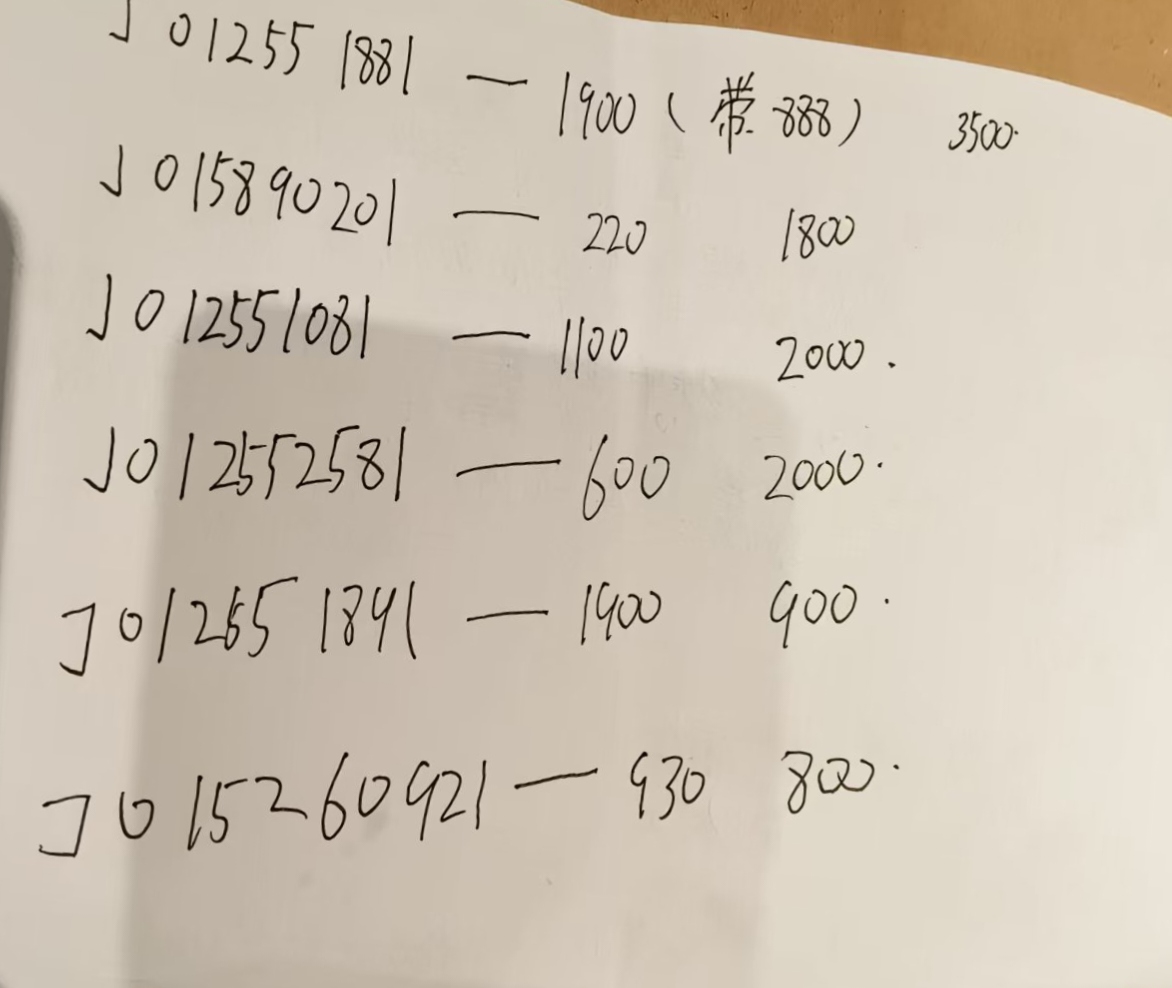 J012551881 — 1900(带888) 3500.
J015890201 — 220 1800
J012551081 — 1100 2000.
J012552581 — 600 2000.
J012551891 — 1900 900.
J015260921 — 930 800.